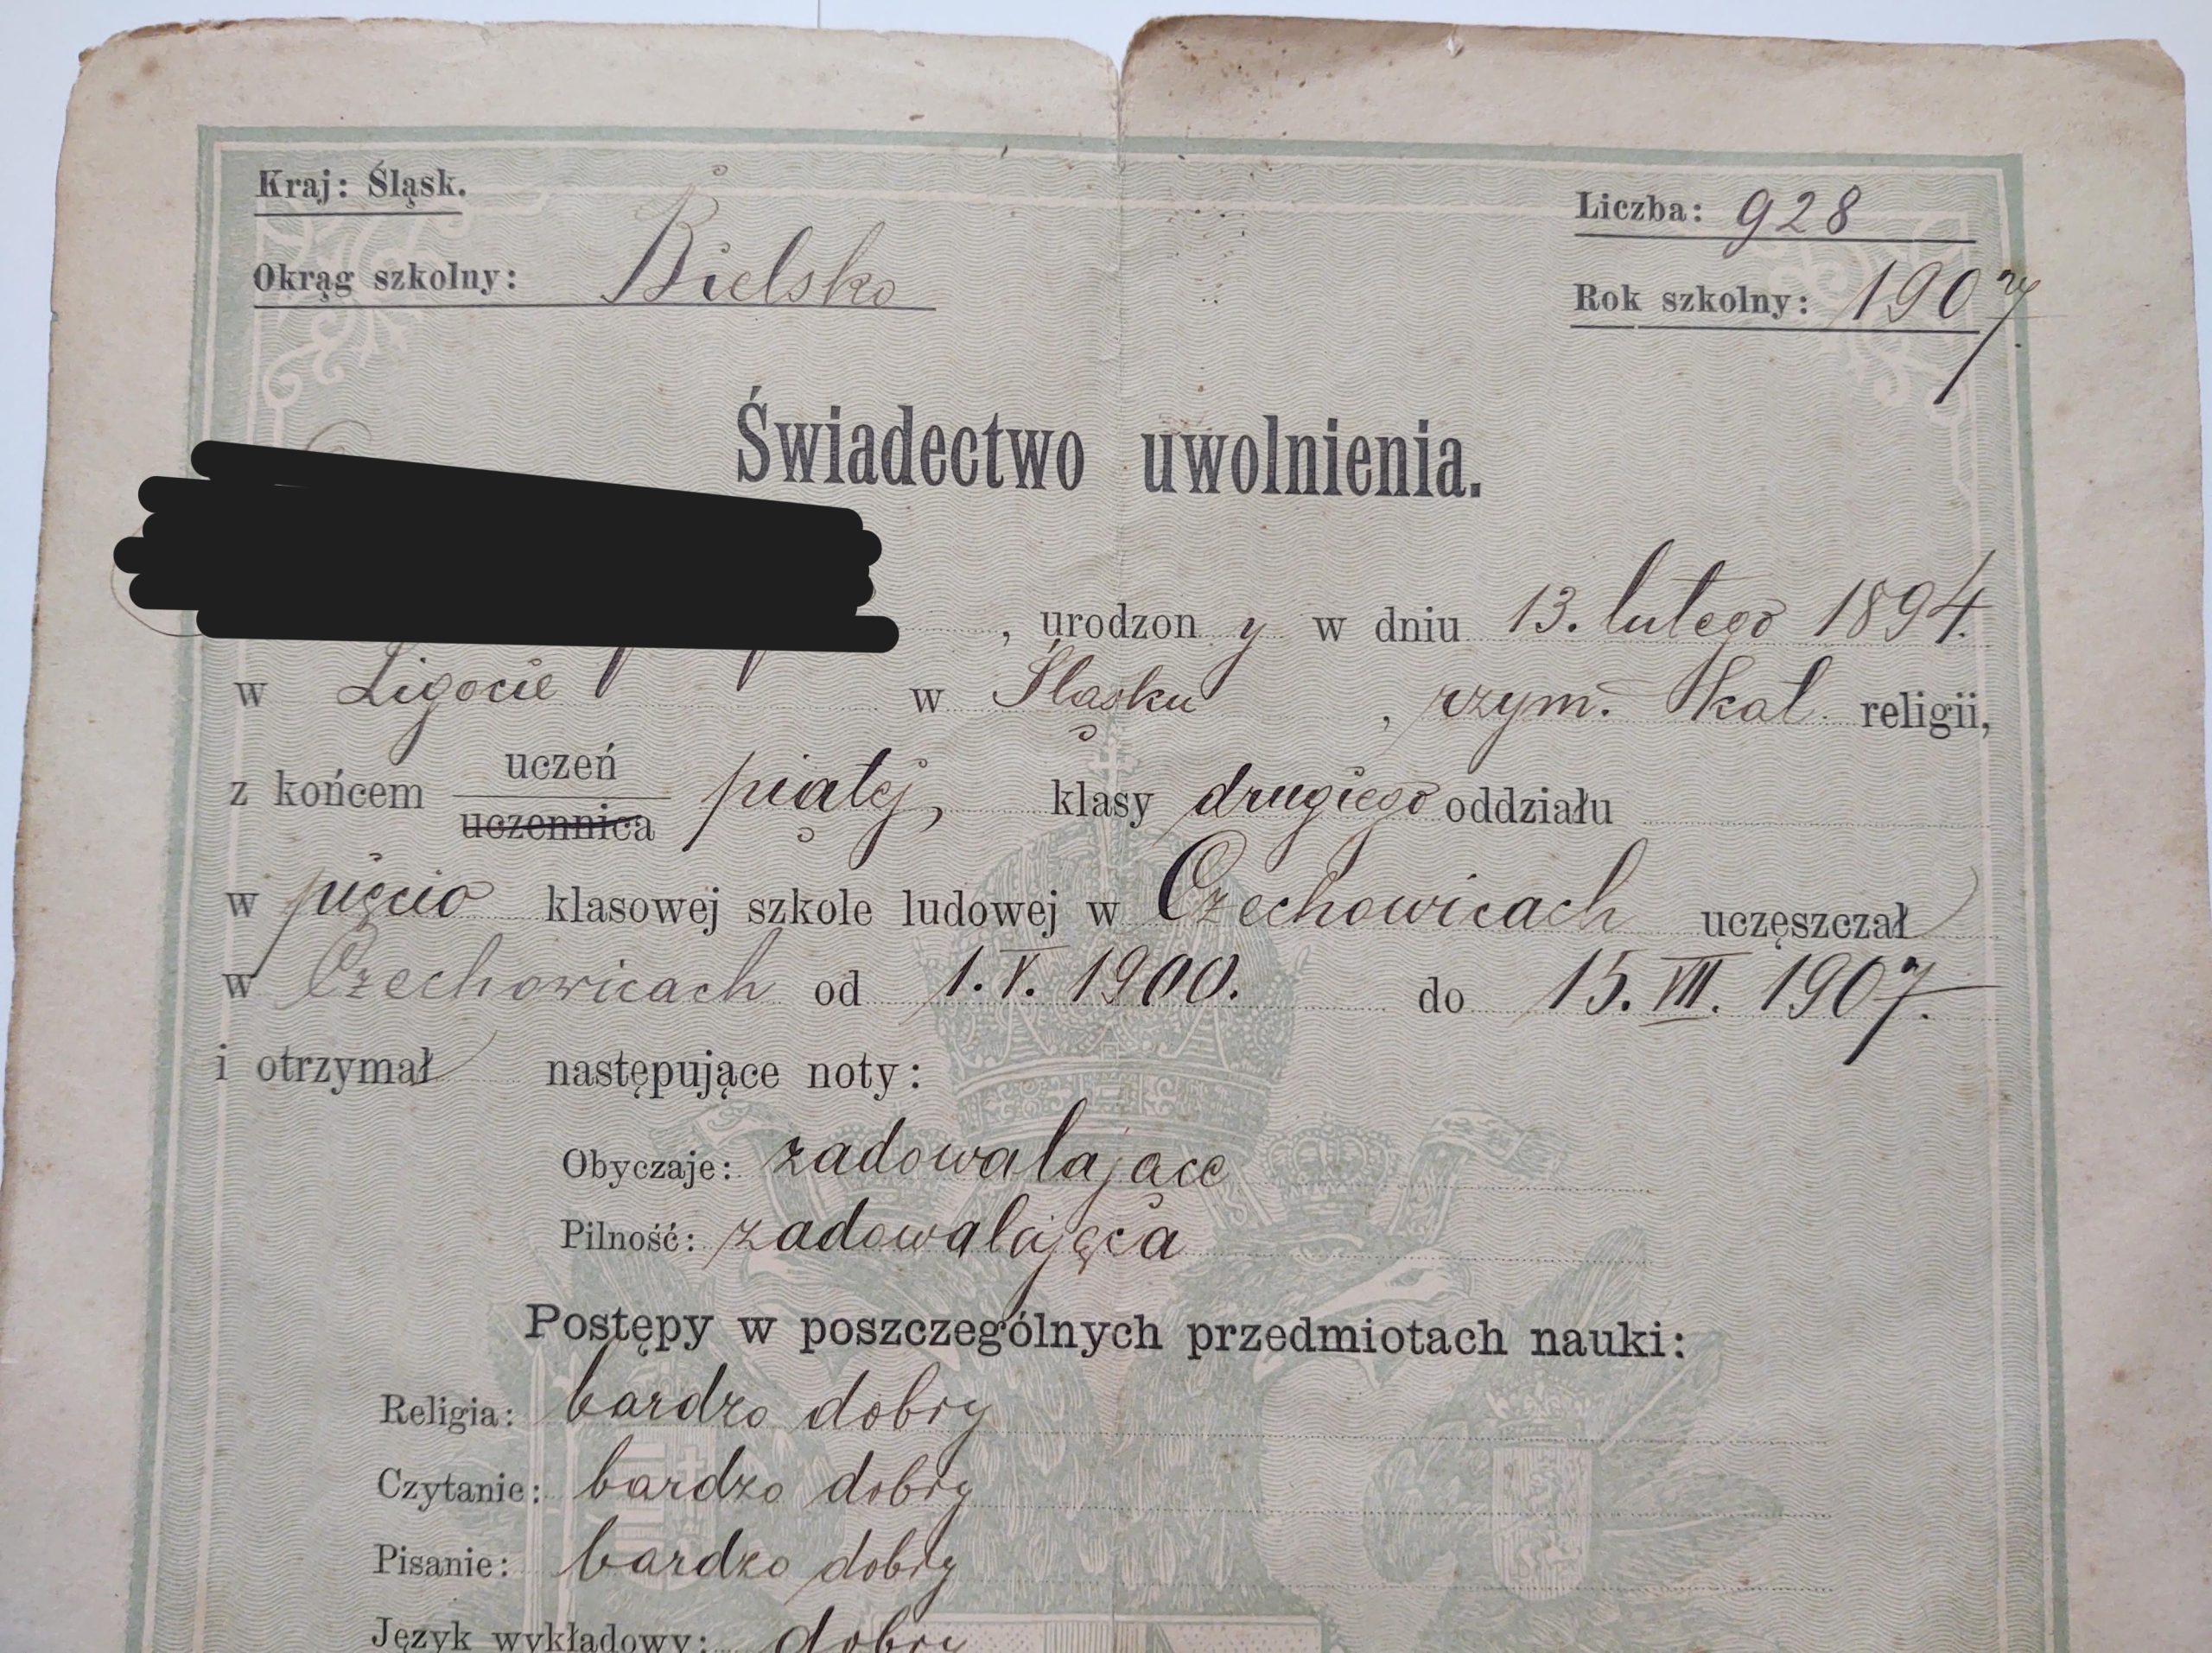 Kraj: Śląsk.
Liczba: 928
Okrąg szkolny: Bielsko
Rok szkolny: 1907.
Świadectwo uwolnienia.
, urodzony w dniu 13. lutego 1894.
w Ligocie w Śląsku, rzym. kat. religii,
z końcem uczeń uczennica piątej, klasy drugiego oddziału
w pięcio klasowej szkole ludowej w Czechowicach uczęszczał
w Czechowicach od 1. V. 1900. do 15. VII. 1907.
i otrzymał następujące noty:
Obyczaje: zadowalające
Pilność: zadowalająca
Postępy w poszczególnych przedmiotach nauki:
Religia: bardzo dobry
Czytanie: bardzo dobry
Pisanie: bardzo dobry
Język wykładowy: dobry